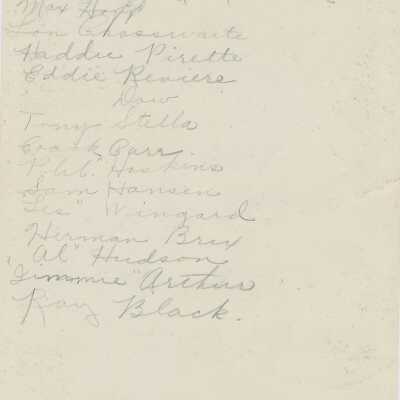 Max Hopf
Lon
Haddie Pirette
Eddie Reviere
Dow
Tony Stella
Frank Parr.
Hoskins
Sam Hansen
"Les" Wingard
Herman Brix
"Al" Hudson
"Jimmie" Arthur
Ray Black.